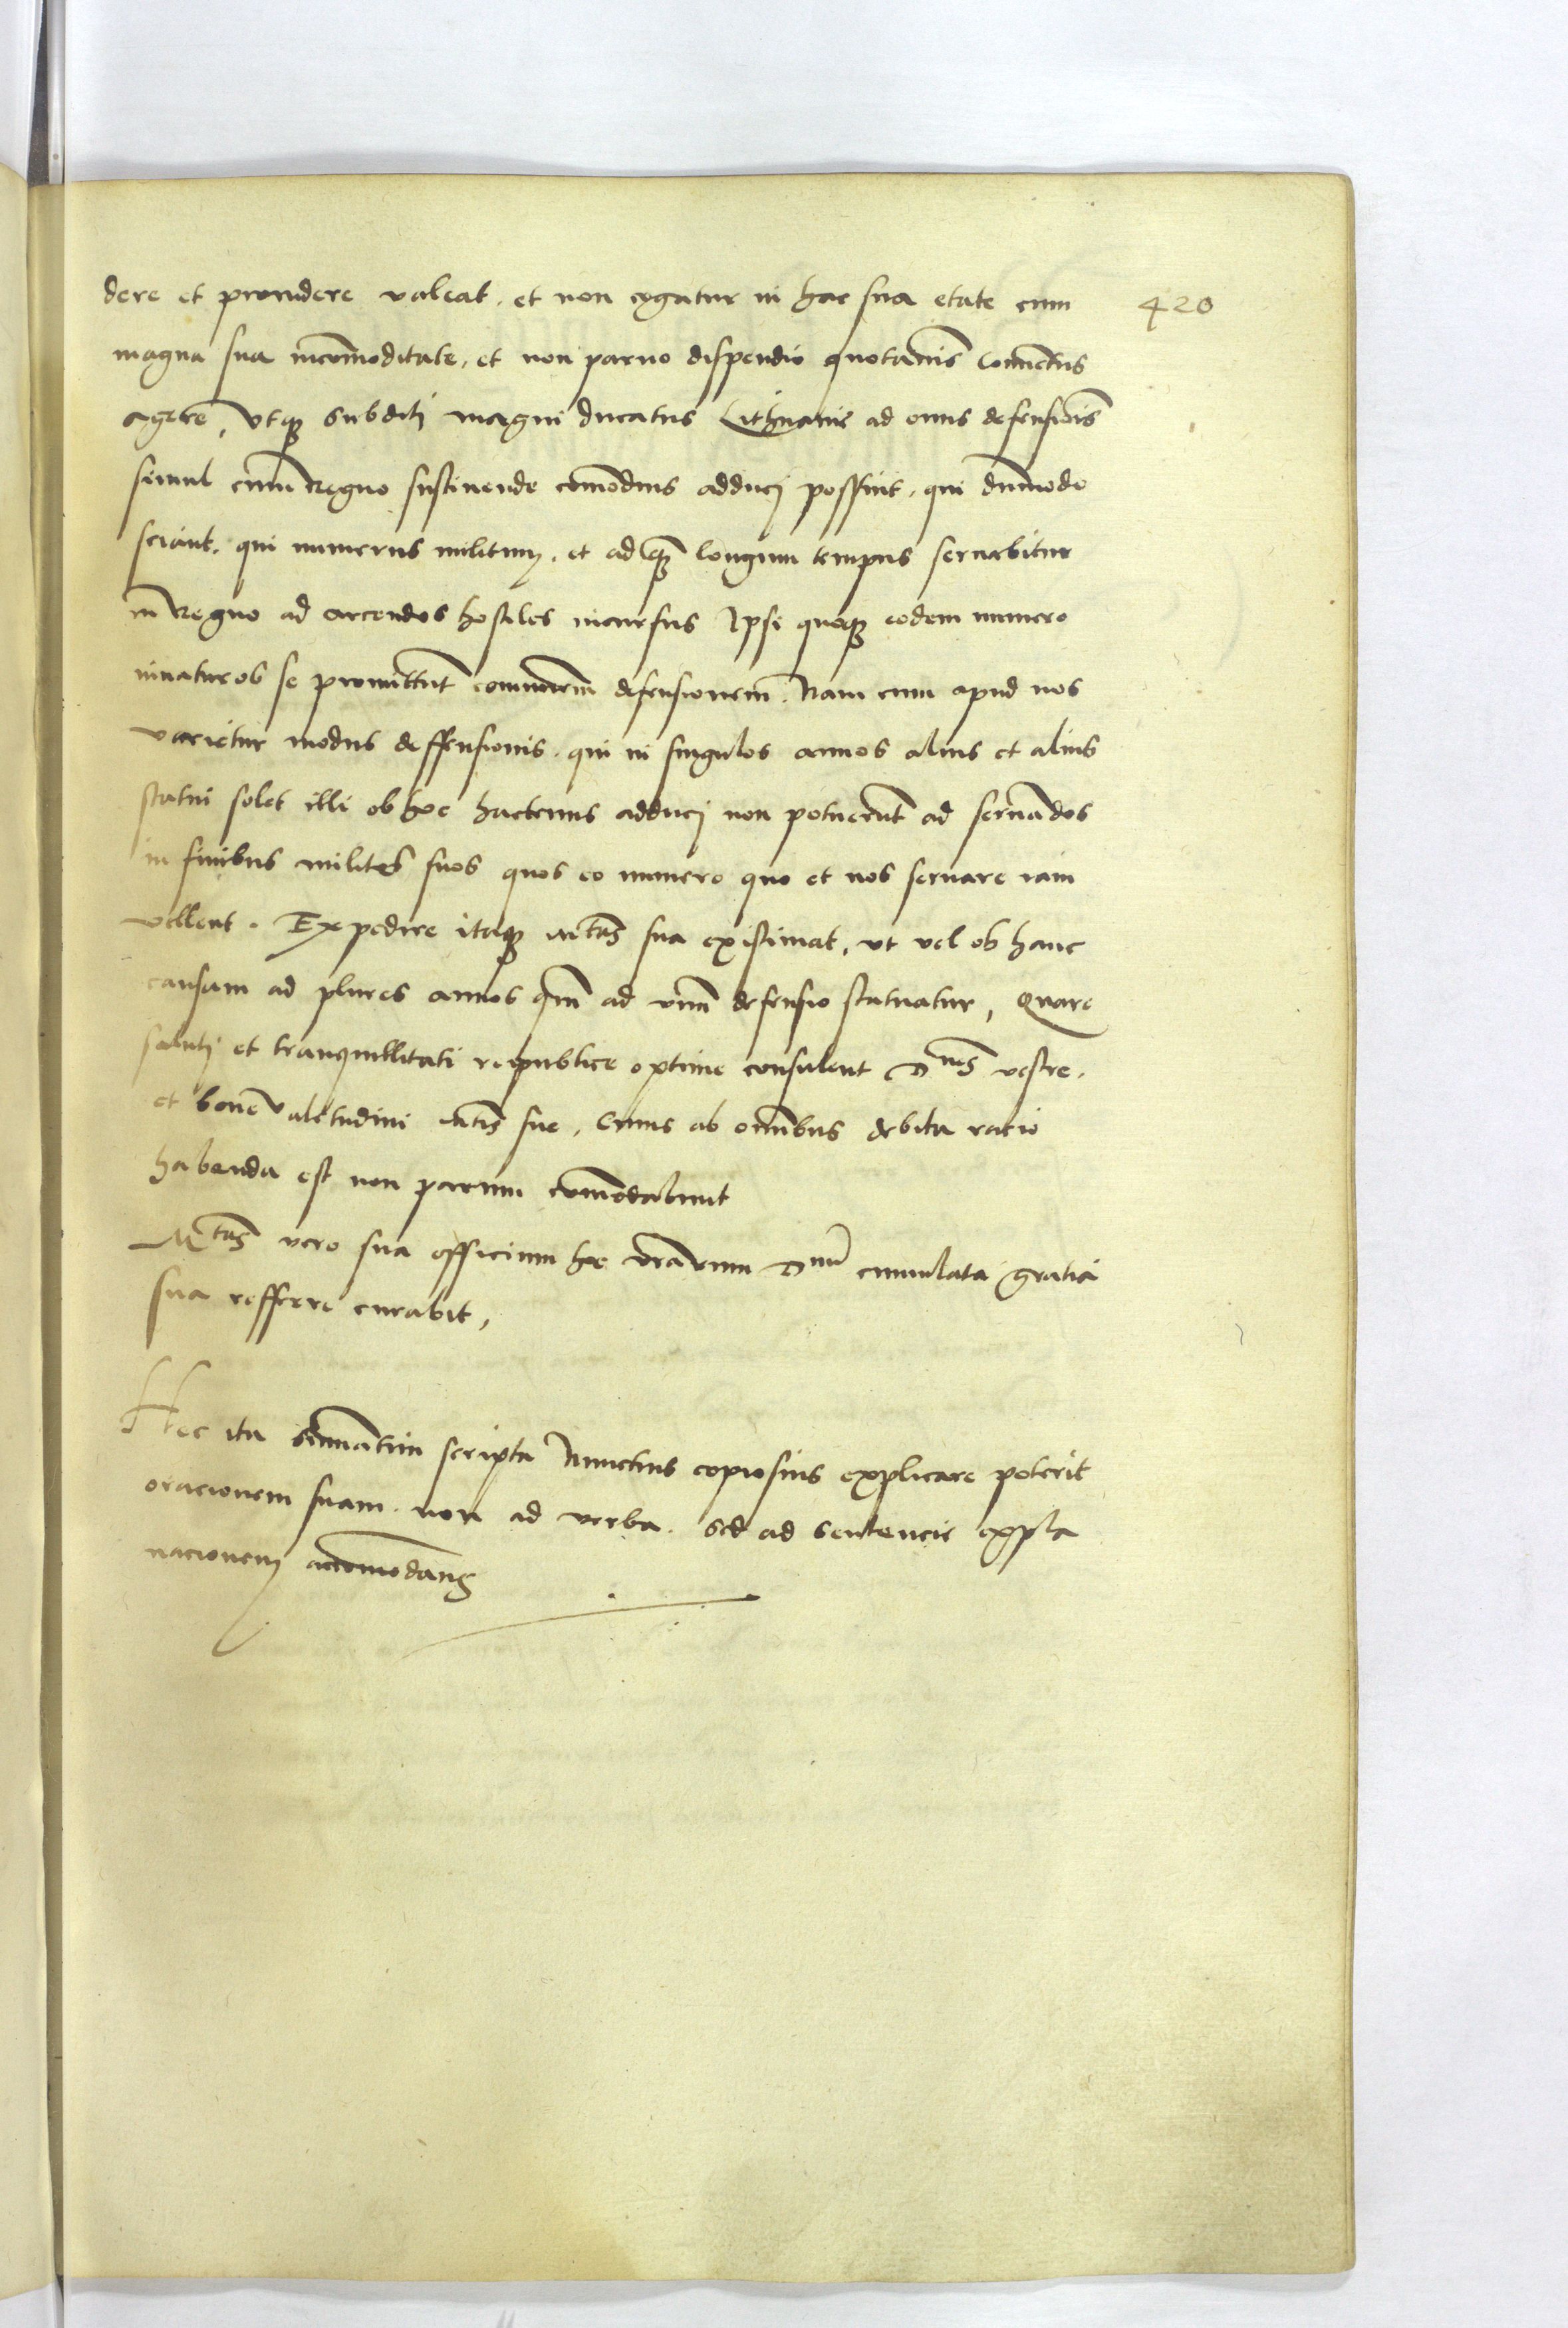 dere et prouidere valeat. et non cogatur in hac sua etate cum 420
magna sua incõmoditate, et non paruo dispendio quotãnis conuentus
agere, vtqȝ subditi magni ducatus Lithuanie ad onus defensiõis
simul cum regno sustinende comodius adduci possint, qui dummodo
sciant, qui numerus militum, et ad qȝ longum tempus seruabitur
in Regno ad arcendos hostiles incursus Ipsi quoqȝ eodem numero
iuuaturos se promittũt comunem defensionem. Nam cum apud nos
varietur modus deffensionis, qui in singulos annos alius et alius
statui solet illi ob hoc hactenus adduci non potuerũt ad seruãdos
in finibus milites suos quos eo numero quo et nos seruare iam
vellent. Expedire itaqȝ Mtas sua existimat, vt vel ob hanc
causam ad plures annos qm̃ ad vnũ defensio statuatur, Quare
saluti et tranquillitati reipublice optime consulent Dnes vestre.
et bone Valetudini Mtis sue, Cuius ab omnibus debita racio
habenda est non parum comodabunt
Mtas vero sua officium hoc vrarum Dnũ cumulata gratia
sua refferre curabit,
Hec ita summatim scripta Nunctius copiosius explicare poterit
oracionem suam. non ad verba. sed ad sentencie expla
nacionem accomodans